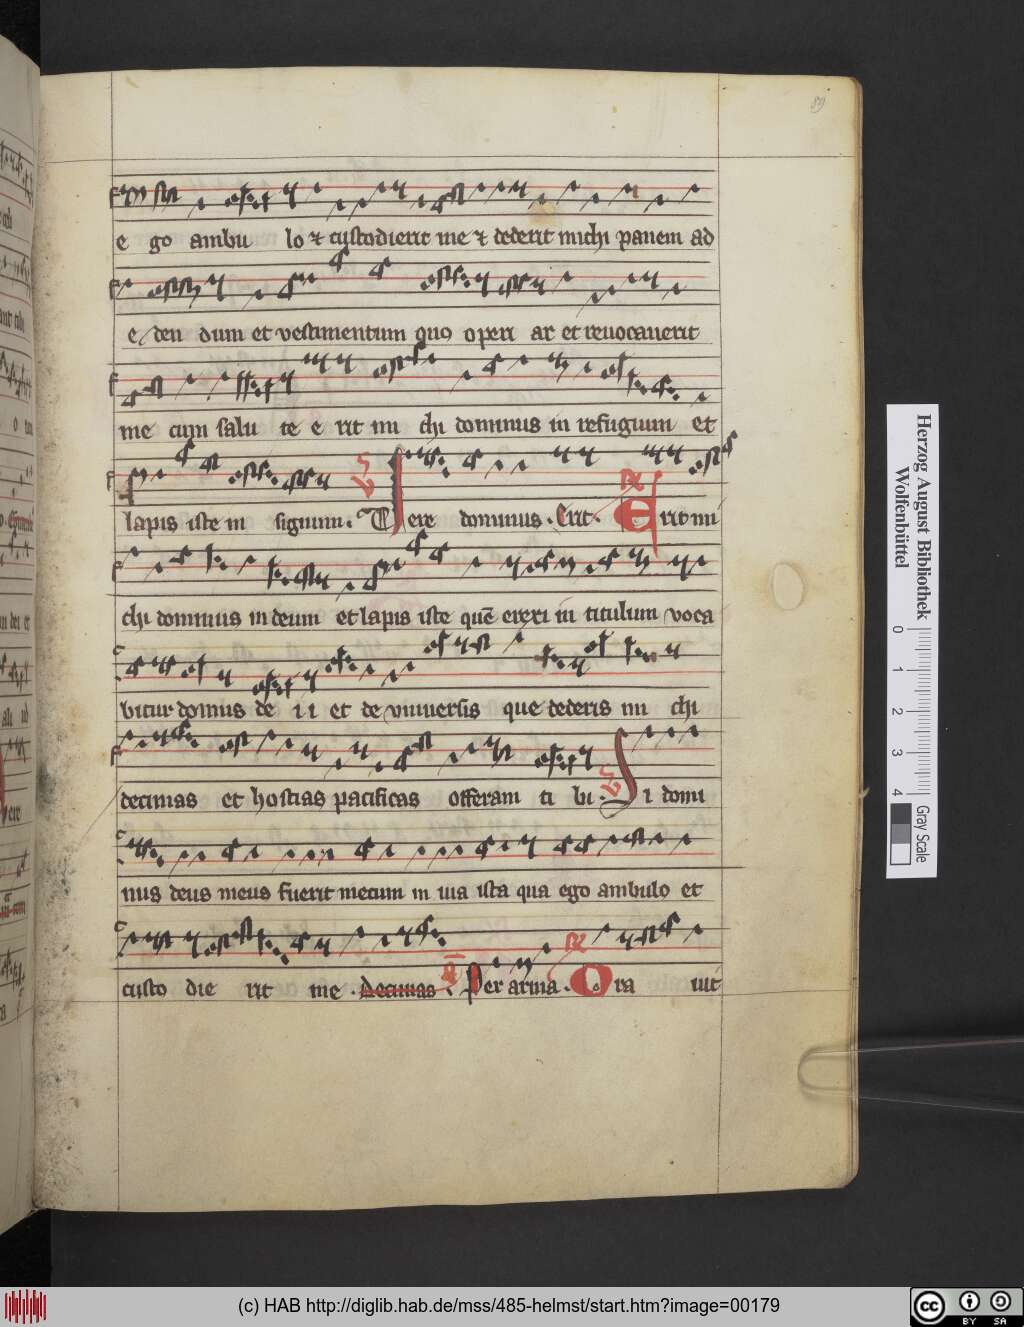 89
e go ambu lo ⁊ custodierit me ⁊ dederit michi panem ad
e den dum et vestimentum quo operi ar et reuocauerit
me cum salu te e rit mi chi dominus in refugium et
lapis iste in signum. V Vere dominus. Erit. R Erit mi
chi dominus in deum et lapis iste quē erexi in titulum voca
bitur domus de i i et de vniuersis que dederis mi chi
decimas et hostias pacificas offeram ti bi. V Si domi
nus deus meus fuerit mecum in uia ista qua ego ambulo et
custo die rit me. decimas. Per arma. R Ora uit
Herzog August Bibliothek
Wolfenbüttel
0 1 2 3 4
Gray Scale
(c) HAB http://diglib.hab.de/mss/485-helmst/start.htm?image=00179
cc BY SA